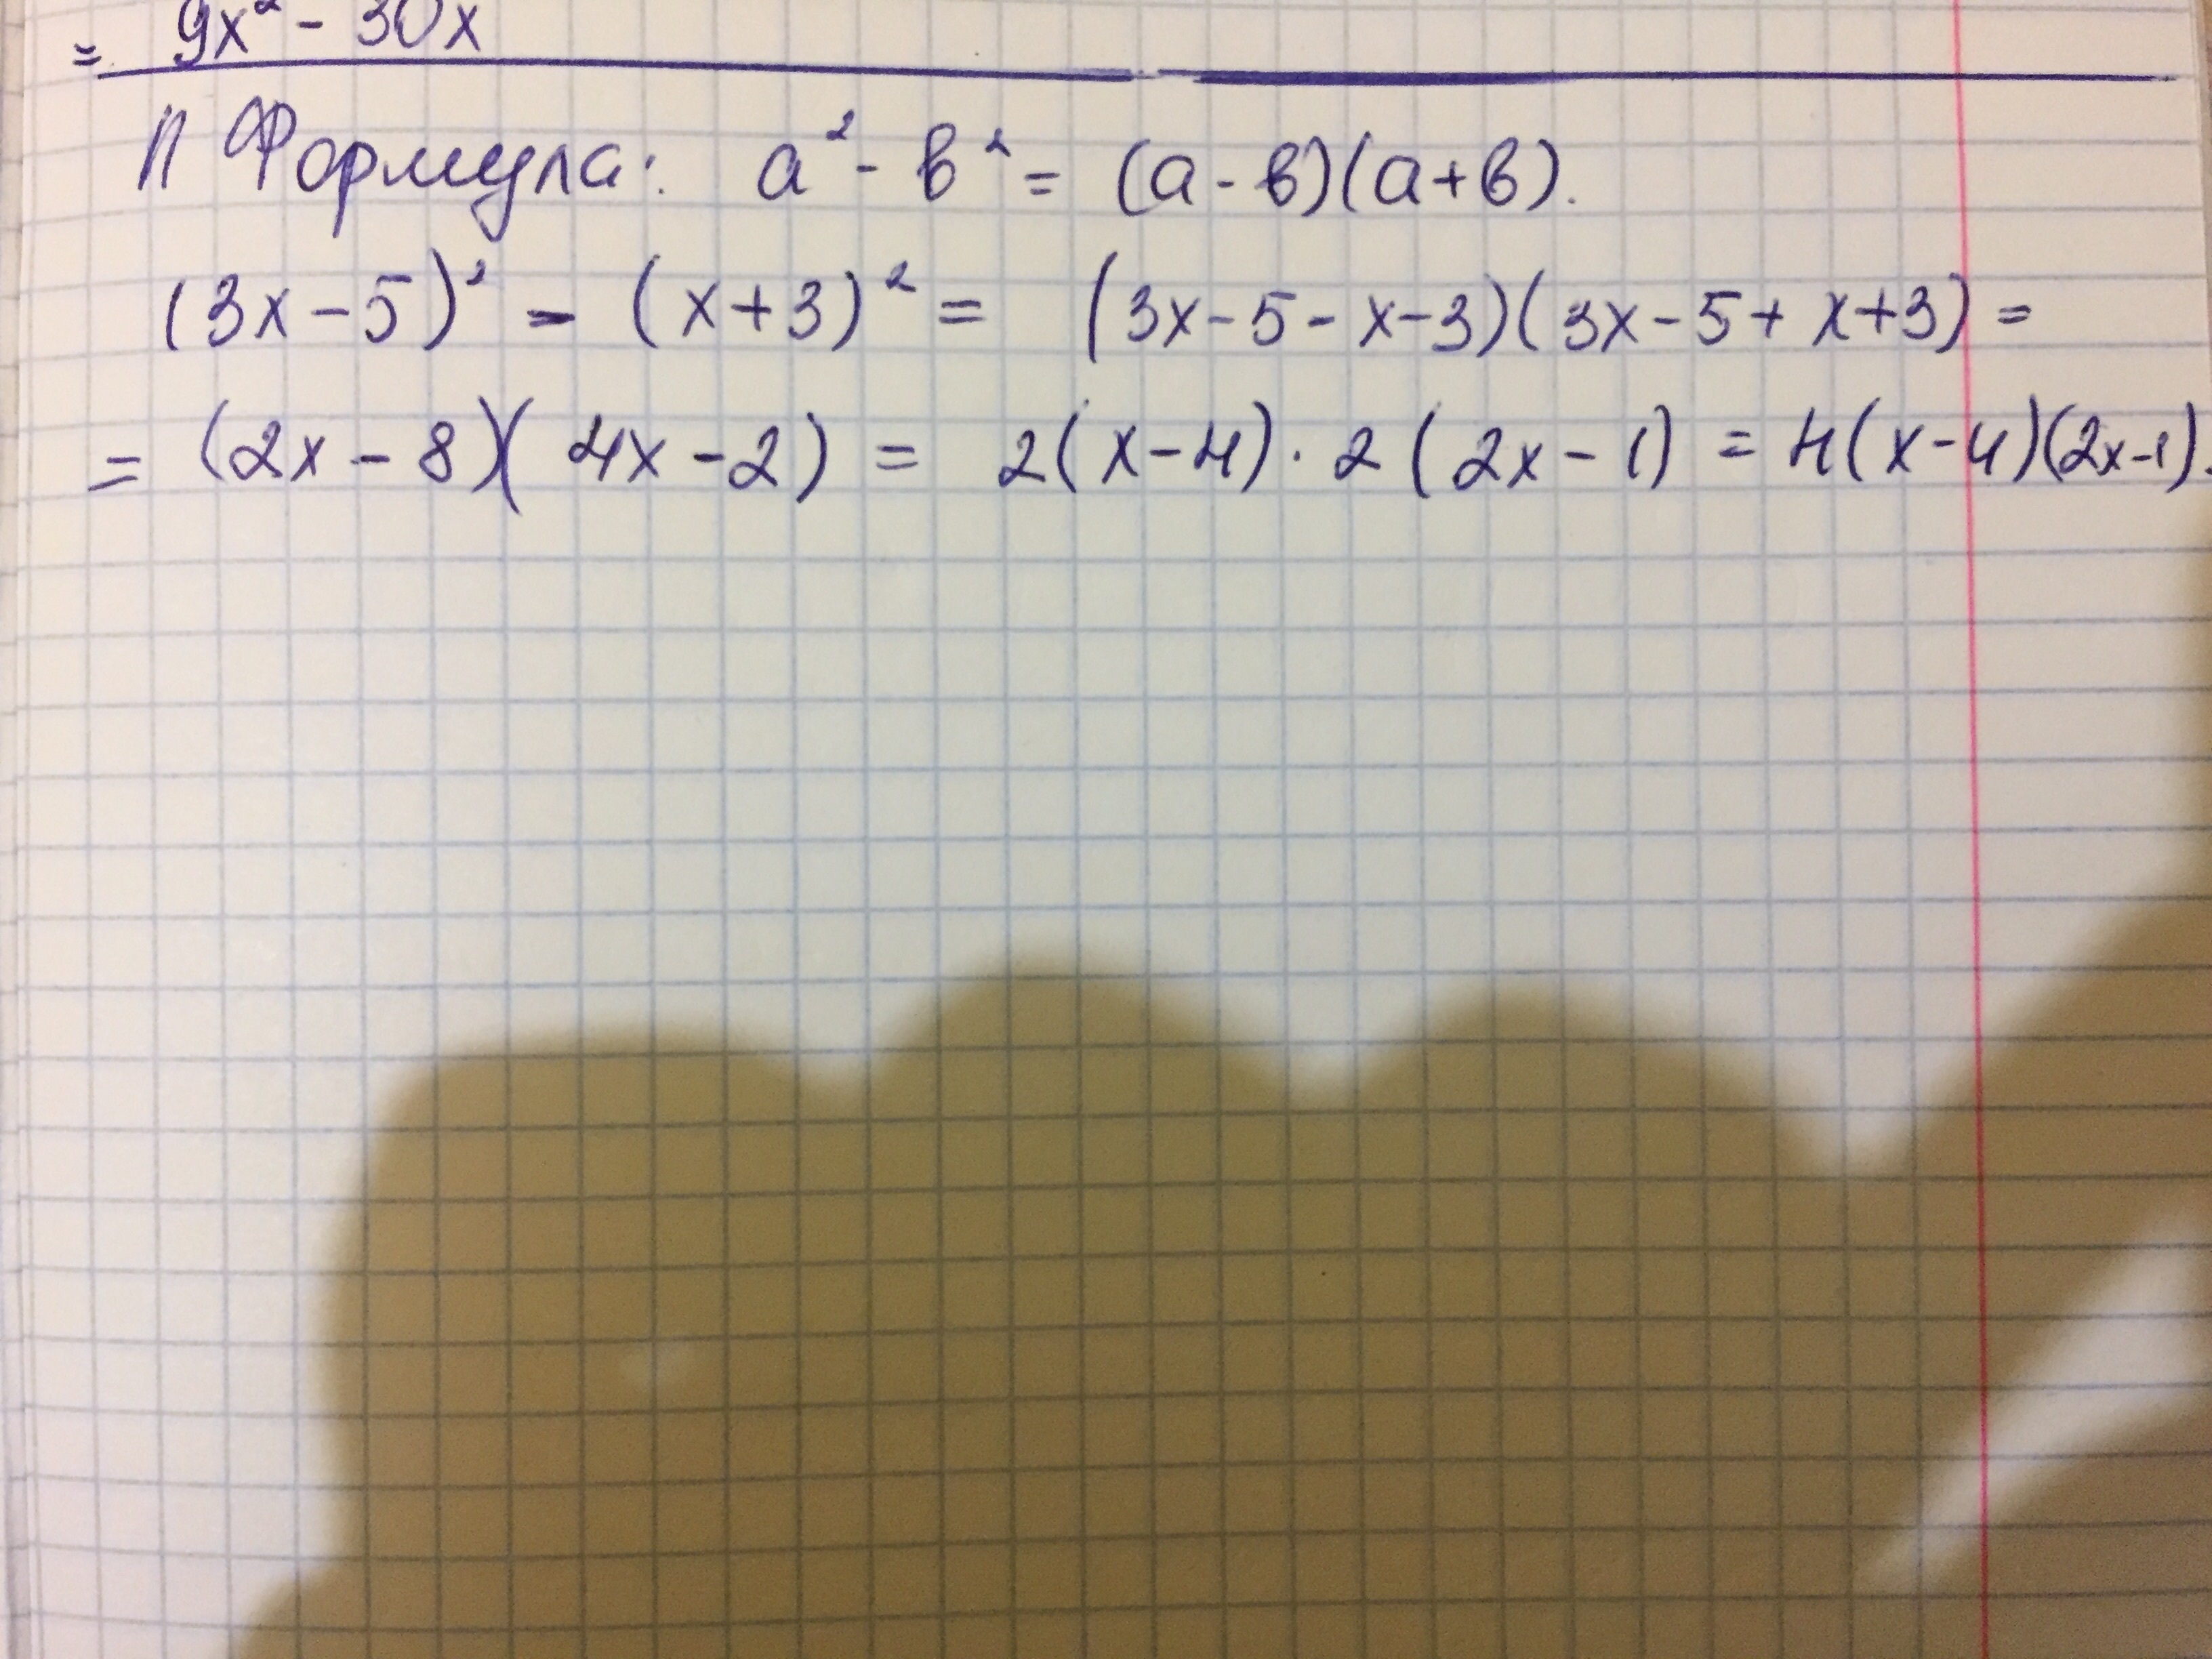 = 9x² - 30x
II Формула: a² - b² = (a - b)(a + b).
(3x - 5)² - (x + 3)² = (3x - 5 - x - 3)(3x - 5 + x + 3) =
= (2x - 8)(4x - 2) = 2(x - 4) · 2(2x - 1) = 4(x - 4)(2x - 1).